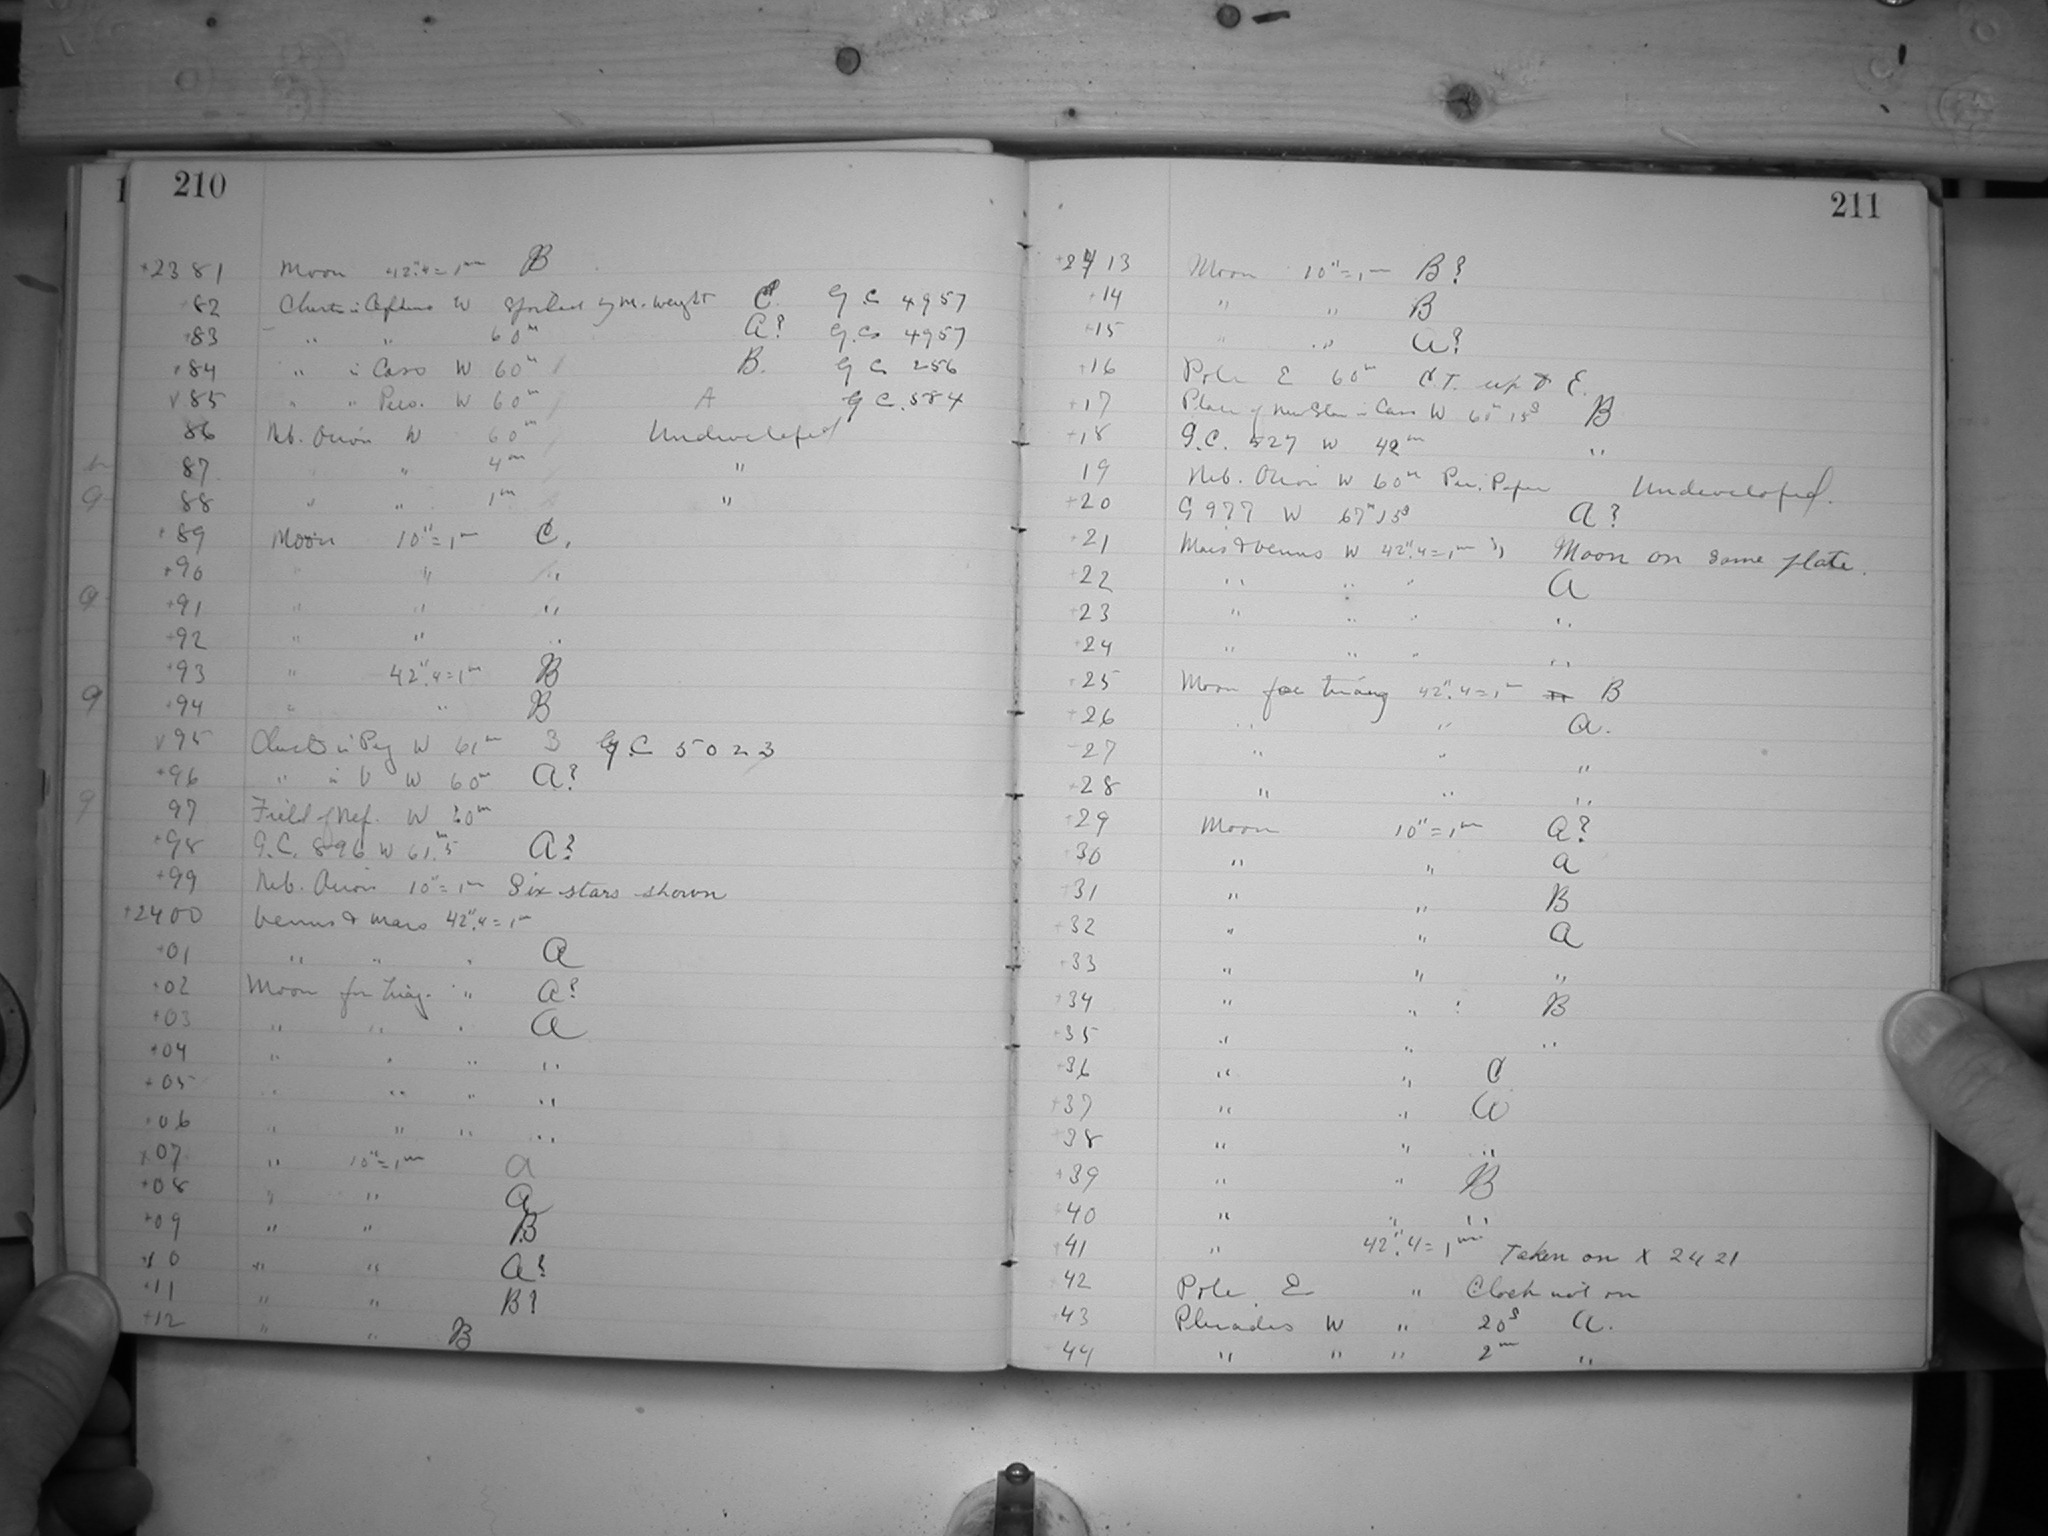 210
+2381 Moon 42".4=1mm B
+82 Cluster in Cepheus W Spoiled by m. weight C. G.C 4957
+83 " " 60m A? G.C. 4957
+84 " in Cass W 60m B. G C. 256
v85 " " Pers. W 60m A G C. 584
86 Neb. Orion W 60m Undeveloped
87 " " 4m "
88 " " 1m "
+89 Moon 10"=1mm C.
+90 " " "
+91 " " "
+92 " " "
+93 " 42".4=1mm B
+94 " " B
v95 Cluster in Peg W 61m B G.C 5023
+96 " in W 60m A?
97 Field of Nep. W 20m
+98 G.C. 896 W 61m.5 A?
+99 Neb. Orion 10"=1mm Six stars shown
+2400 Venus & Mars 42".4=1mm
+01 " " " A
+02 Moon for triag. " A?
+03 " " " A
+04 " " " "
+05 " " " "
+06 " " " "
+07 " 10"=1mm A
+08 " " A
+09 " " B
+10 " " A?
+11 " " B?
+12 " " B
211
+2413 Moon 10"=1mm B?
+14 " " B
+15 " " A?
+16 Pole E 60m C.T. up & E.
+17 Place of New Star in Cass W 60m 15s B
+18 G.C. 527 W 42m "
19 Neb. Orion W 60m Undeveloped.
+20 G 977 W 67m 15s A?
+21 Mars & Venus W 42".4=1mm Moon on same plate.
+22 " " " A
+23 " " " "
+24 " " " "
+25 Moon for triang 42".4=1mm B
+26 " " A.
+27 " " "
+28 " " "
+29 Moon 10"=1mm A?
+30 " " A
+31 " " B
+32 " " A
+33 " " "
+34 " " B
+35 " " "
+36 " " C
+37 " " A
+38 " " "
+39 " " B
+40 " " "
+41 " 42".4=1mm Taken on X 2421
+42 Pole E " Clock not on
+43 Pleiades W " 20s A.
44 " " " 2m "